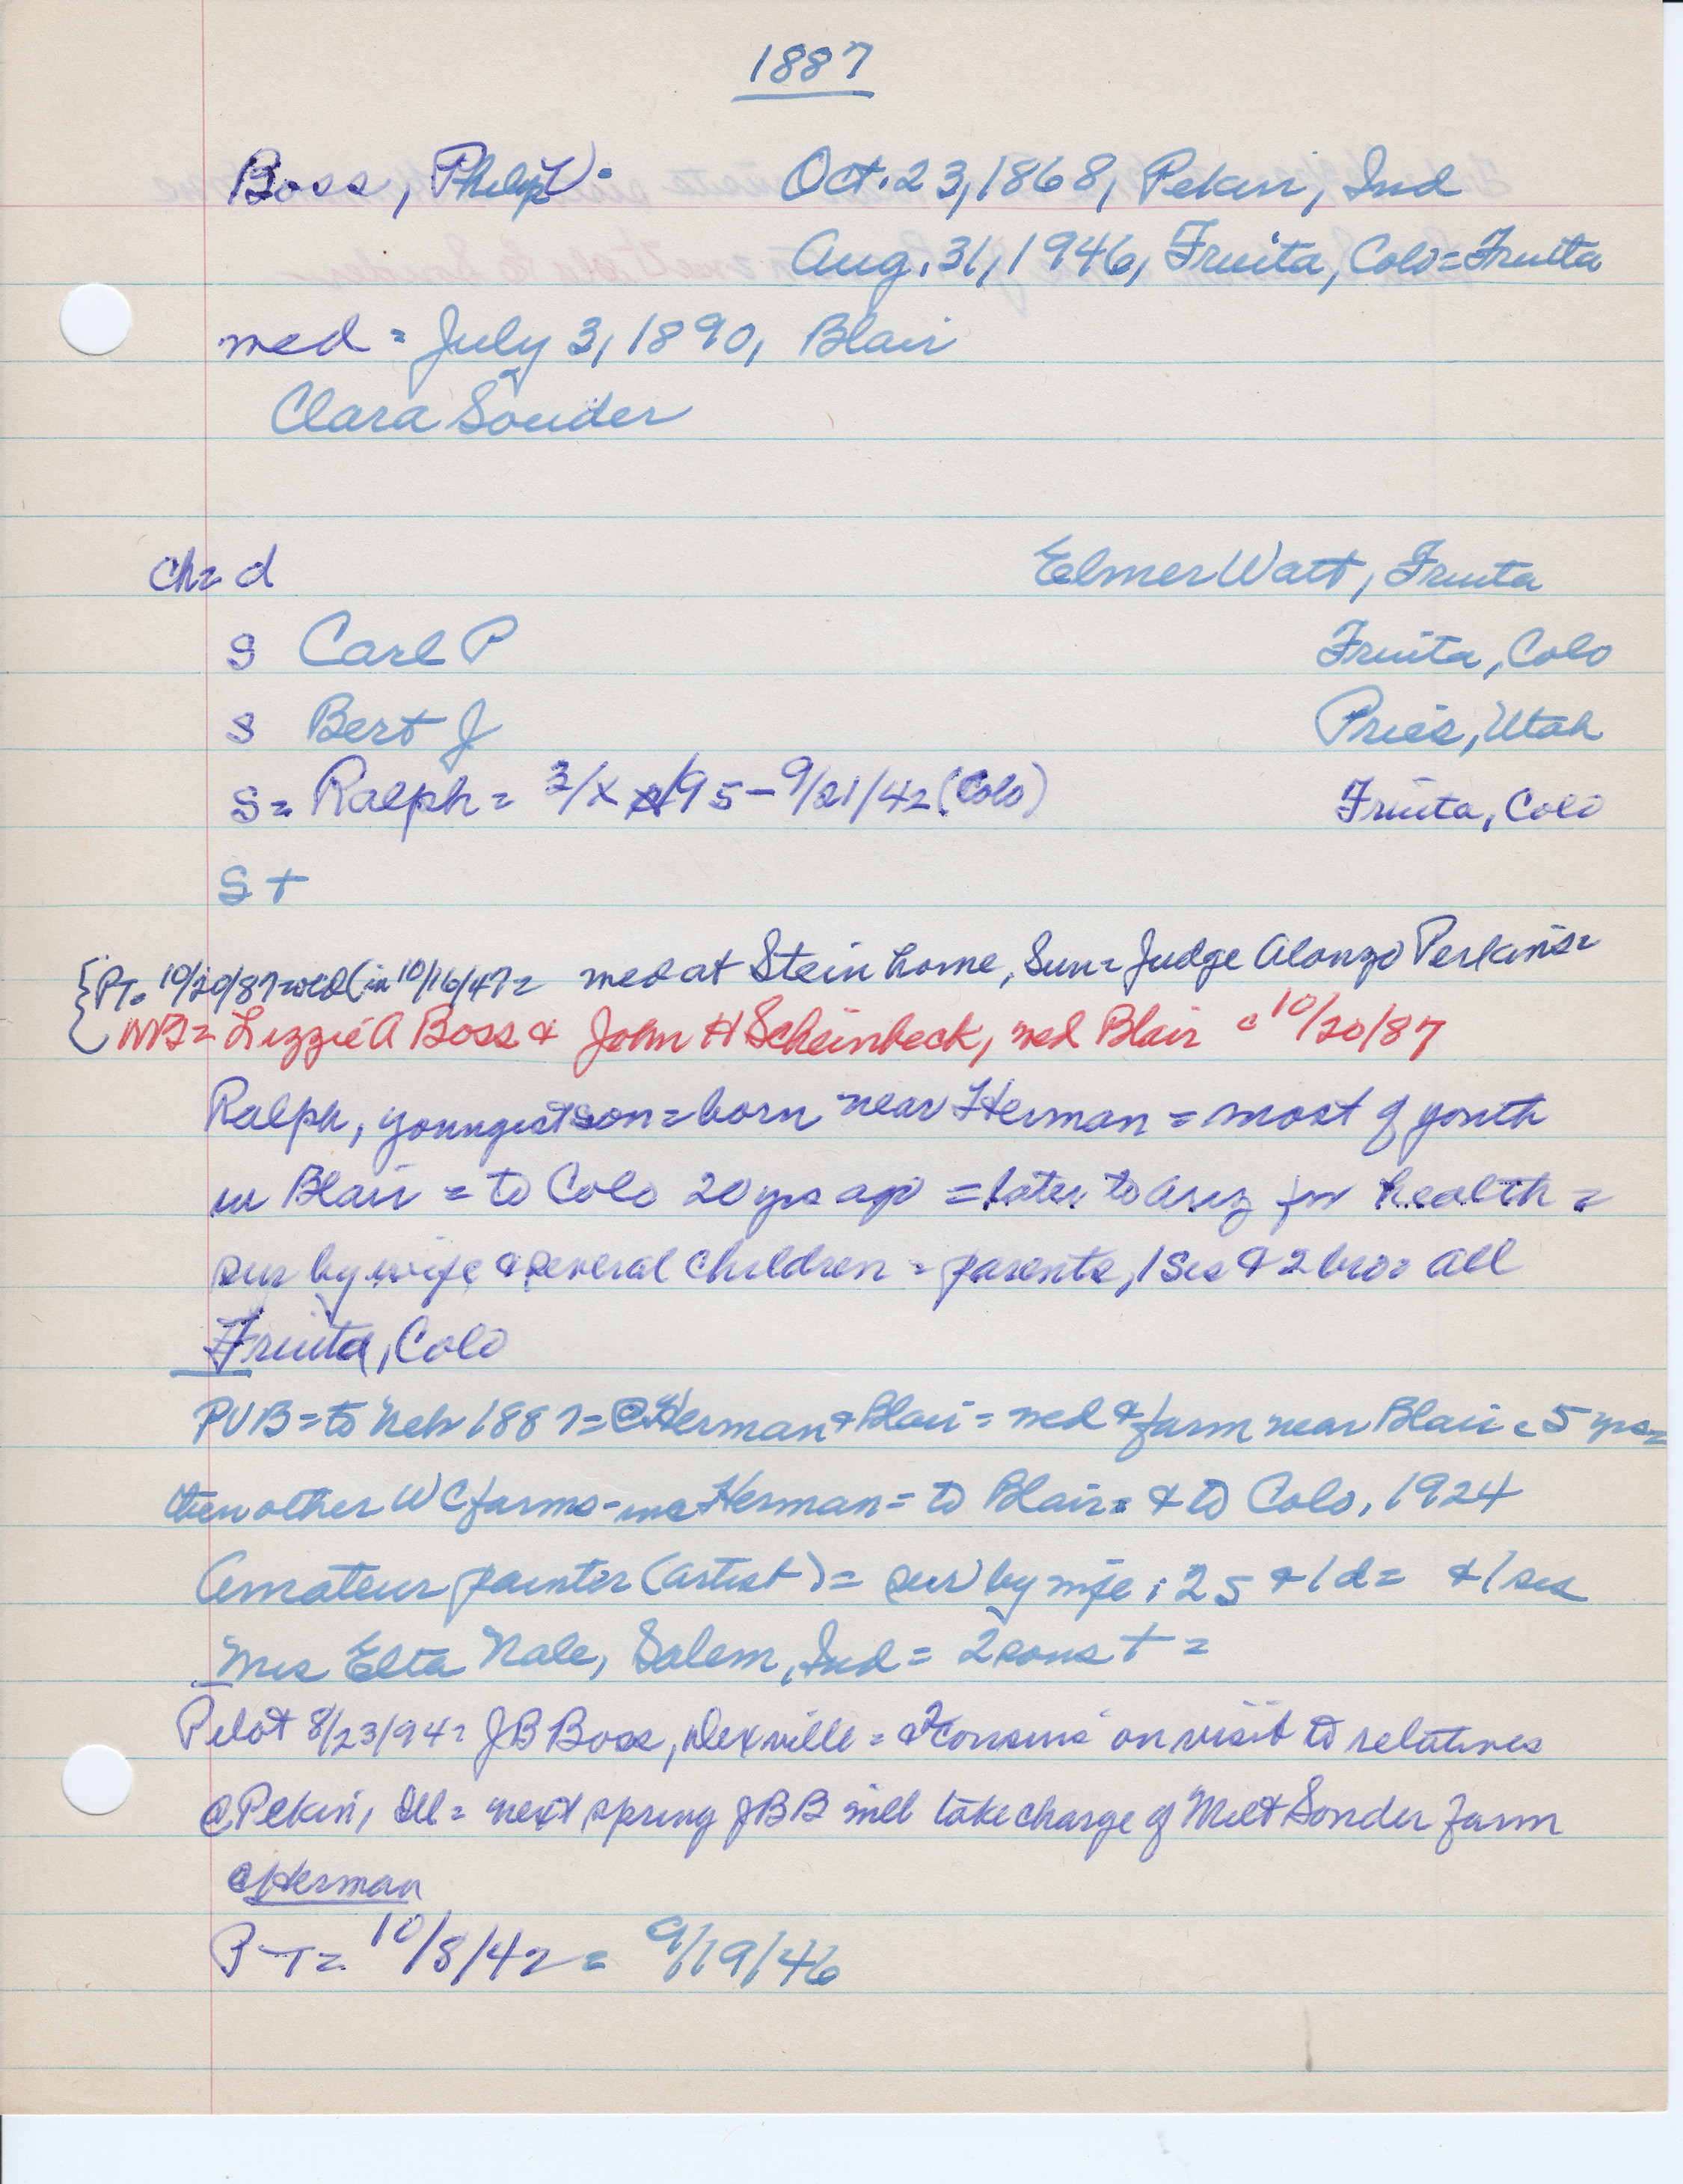 1887
Boss, Philip V. Oct. 23, 1868, Pekin, Ind
Aug. 31, 1946, Fruita, Colo = Fruita
med = July 3, 1890, Blair
Clara Souder
Ch = d Elmer Watt, Fruita
S Carl P Fruita, Colo
S Bert J Price, Utah
S = Ralph = 3/X /95 - 9/21/42 (Colo) Fruita, Colo
S +
PT = 10/20/87 wed (in 10/16/47 = med at Stein home, Sun = Judge Alonzo Perkins =
NB = Lizzie A Boss & John H Scheinbeck, med Blair c 10/20/87
Ralph, youngest son = born near Herman = most of youth
in Blair = to Colo 20 yrs ago = later to Ariz for health =
sur by wife & several children = parents, 1 sis & 2 bro = all
Fruita, Colo
PVB = to Neb 1887 = @ Herman & Blair = med & farm near Blair c 5 yrs =
then other WC farms - Herman = to Blair = & to Colo, 1924
Amateur painter (artist) = sur by wife; 2 S & 1 d = & 1 sis
Mrs Elta Nale, Salem, Ind = 2 sons + =
Pilot 8/23/94 = JB Boss, Dexville = & "cousins" on visit to relatives
@ Pekin, Ill = next spring JBB will take charge of Milt Souder farm
@ Herman
PT = 10/8/42 = 9/19/46